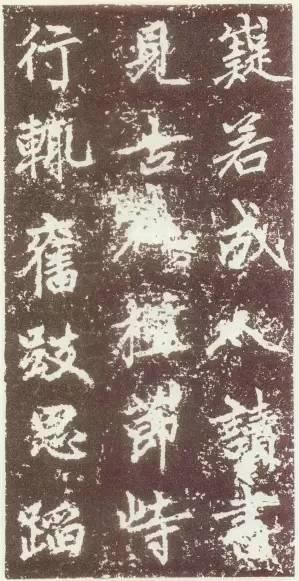 嶷若成人讀書
見古植節峙
行輒奮思蹈